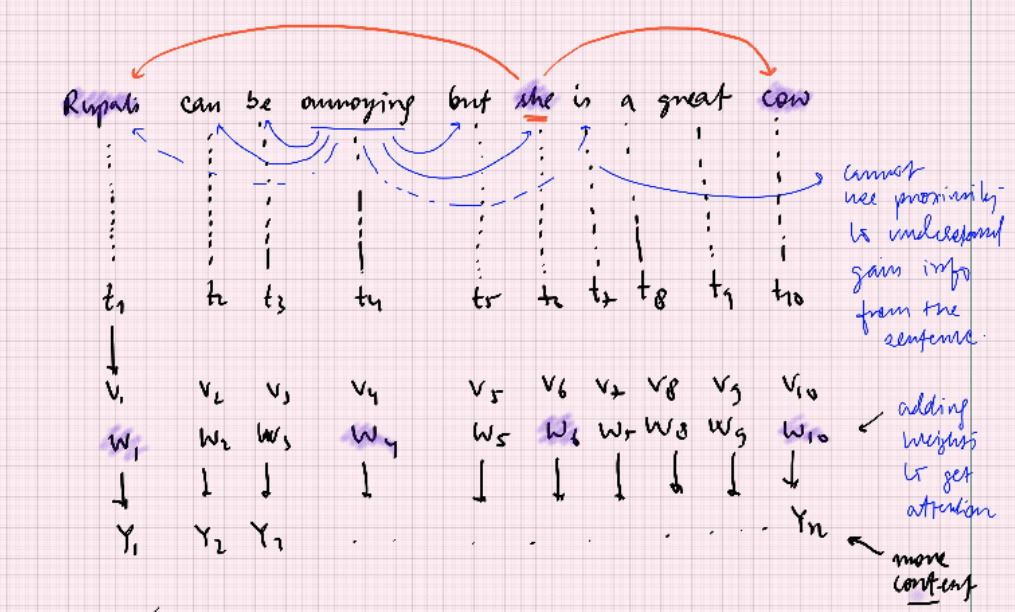 Rupali can be annoying but she is a great cow
cannot
use proximity
to understand
gain info
from the
sentence.
t1 t2 t3 t4 t5 t6 t7 t8 t9 t10
V1 V2 V3 V4 V5 V6 V7 V8 V9 V10
W1 W2 W3 W4 W5 W6 W7 W8 W9 W10
adding
weights
to get
attention
Y1 Y2 Y3 . . . . . . . Yn
more
context